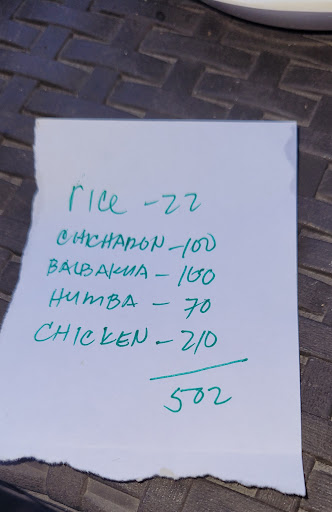 rice - 22
CHICHARON - 100
BALBAKUA - 100
HUMBA - 70
CHICKEN - 210
502